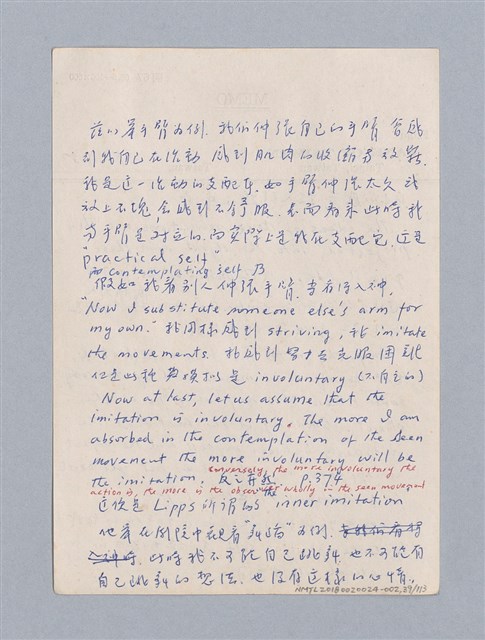 茲以舉手臂為例. 我們伸張自己的手臂 會感
到我自己在活動 感到肌肉的收縮與放鬆.
我是這一活動的支配者. 如手臂伸張太久 或
放上石塊 會感到不舒服. 表面看來此時我
與手臂是對立的. 而實際上是我在支配它. 這是
"practical self"
而 contemplating self 乃
假如我看別人伸張手臂. 看得入神.
"Now I substitute someone else's arm for
my own." 我同樣感到 striving, 我 imitate
the movements. 我感到努力去克服困難
但是此種 模擬是 involuntary (不自主的)
Now at last, let us assume that the
imitation is involuntary. The more I am
absorbed in the contemplation of the seen
movement the more involuntary will be
the imitation. 反之亦然 p.374
conversely, the more involuntary the
action is, the more is the observer wholly in the seen movement
這便是 Lipps 所謂的 inner imitation
他舉在劇院中觀看"舞蹈"為例.
此時我不可能自己跳舞. 也不可能有
自己跳舞的想法. 也沒有這樣的心情.
NMTL20180020024-002,39/113